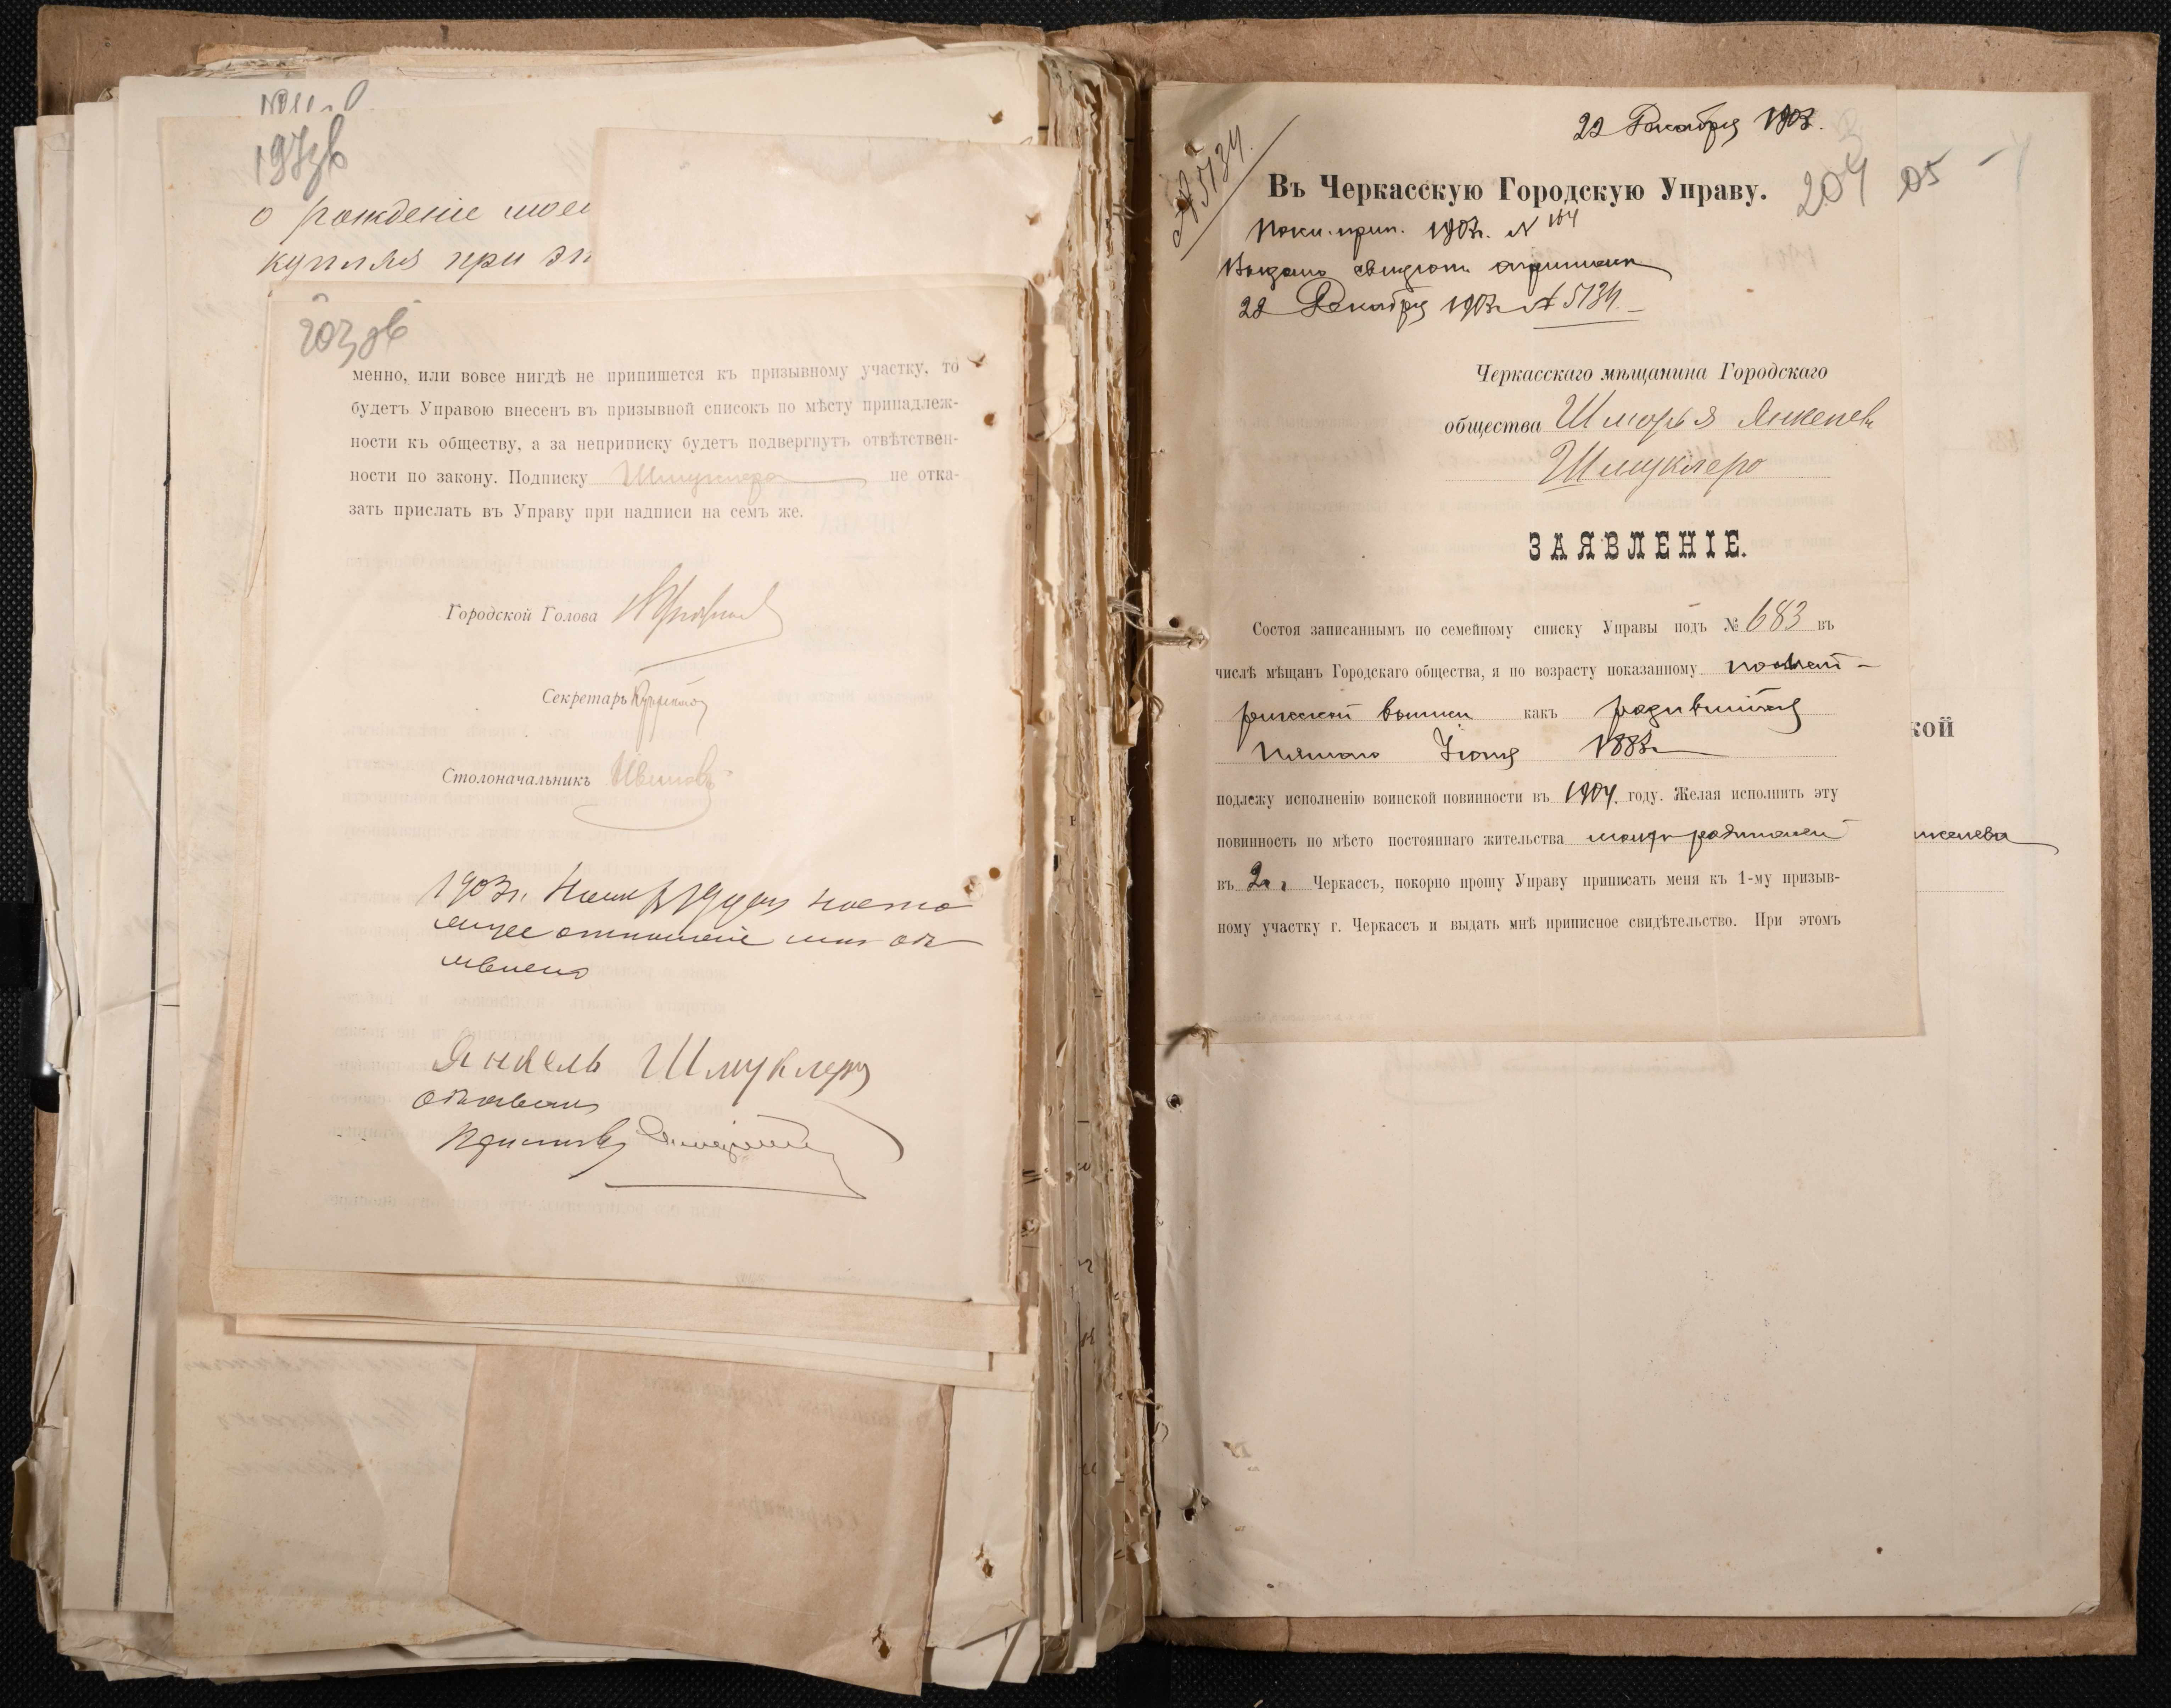 197зв
о рожденіе моей
купляя при эт
203 зв
менно, или вовсе нигдѣ не припишется къ призывному участку, то
будетъ Управою внесенъ въ призывной списокъ по мѣсту принадлеж-
ности къ обществу, а за неприписку будетъ подвергнутъ отвѣтствен-
ности по закону. Подписку Шмуклера не отка-
зать прислать въ Управу при надписи на семъ же.
Городской Голова
Секретарь
Столоначальникъ Ивановъ
1903г. 19 дня насто
ящее отношеніе мнѣ объ
явлено
Янкель Шмуклеръ
объявилъ
22 Декабря 1903.
№ 5134.
Въ Черкасскую Городскую Управу.
204
05
1903г. № 164
Выдано свидѣт.
22 Декабря 1903г. № 5134.
Черкасскаго мѣщанина Городскаго
общества Шморья Янкелевъ
Шмуклеръ
ЗАЯВЛЕНІЕ.
Состоя записаннымъ по семейному списку Управы подъ № 683 въ
числѣ мѣщанъ Городскаго общества, я по возрасту показанному по мет-
рической выписи какъ родившійся
1883г.
подлежу исполненію воинской повинности въ 1904 году. Желая исполнить эту
повинность по мѣсто постояннаго жительства моихъ родителей
въ г. Черкассъ, покорно прошу Управу приписать меня къ 1-му призыв-
ному участку г. Черкассъ и выдать мнѣ приписное свидѣтельство. При этомъ
кой
нкелева